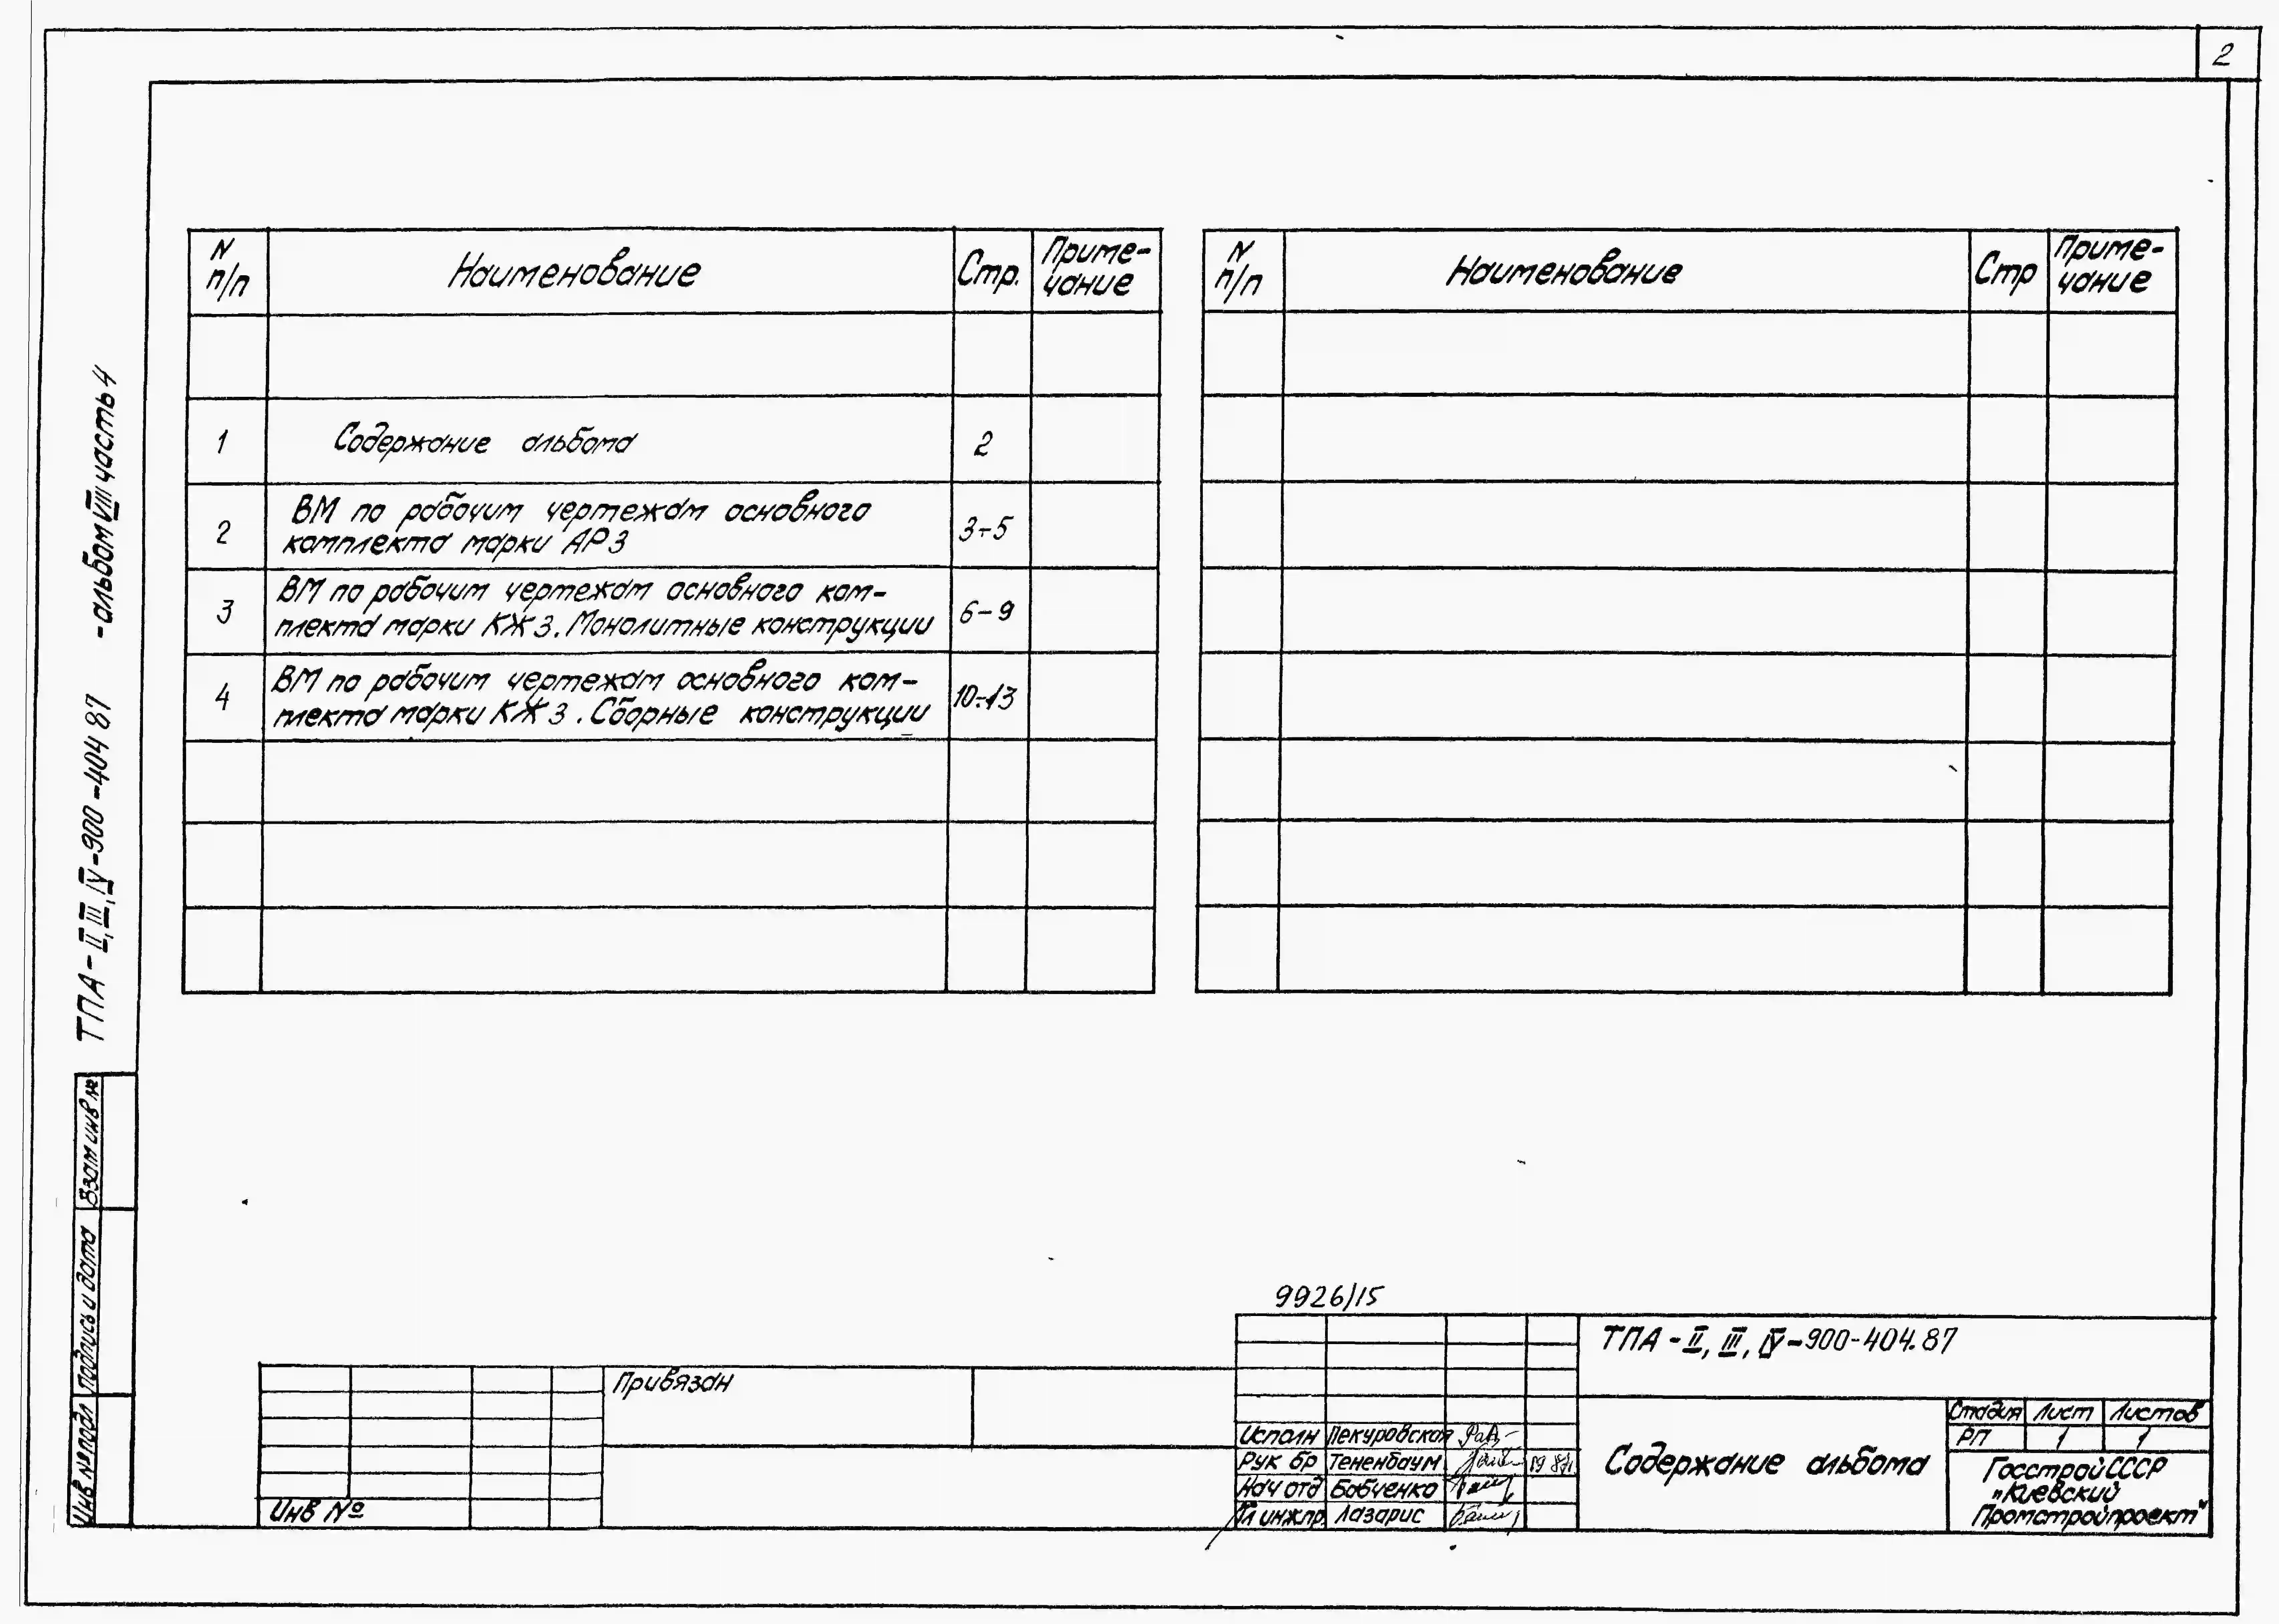 2
N п/п Наименование Стр. Приме-чание
1 Содержание альбома 2
2 ВМ по рабочим чертежам основного
комплекта марки АР3 3÷5
3 ВМ по рабочим чертежам основного ком-
плекта марки КЖ3. Монолитные конструкции 6-9
4 ВМ по рабочим чертежам основного ком-
плекта марки КЖ3. Сборные конструкции 10÷13
N п/п Наименование Стр Приме-чание
ТПА-II,III,IV-900-404 87 -альбом VIII часть 4
Взам инв №
Подпись и дата
Инв № подл
9926/15
ТПА-II, III, IV-900-404.87
Привязан
Инв №
Исполн Пекуровская
Рук бр Тененбаум
Нач отд Бабченко
Гл инж пр Лазарис
Содержание альбома
Стадия Лист Листов
РП 1 1
Госстрой СССР
„Киевский
Промстройпроект"